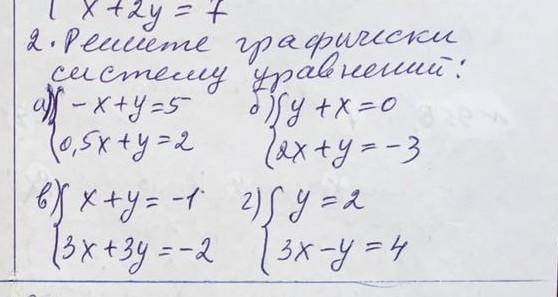 x+2y=7
2. Решите графически
систему уравнений:
а) { -x+y=5 б) { y+x=0
0,5x+y=2 2x+y=-3
в) { x+y=-1 г) { y=2
3x+3y=-2 3x-y=4